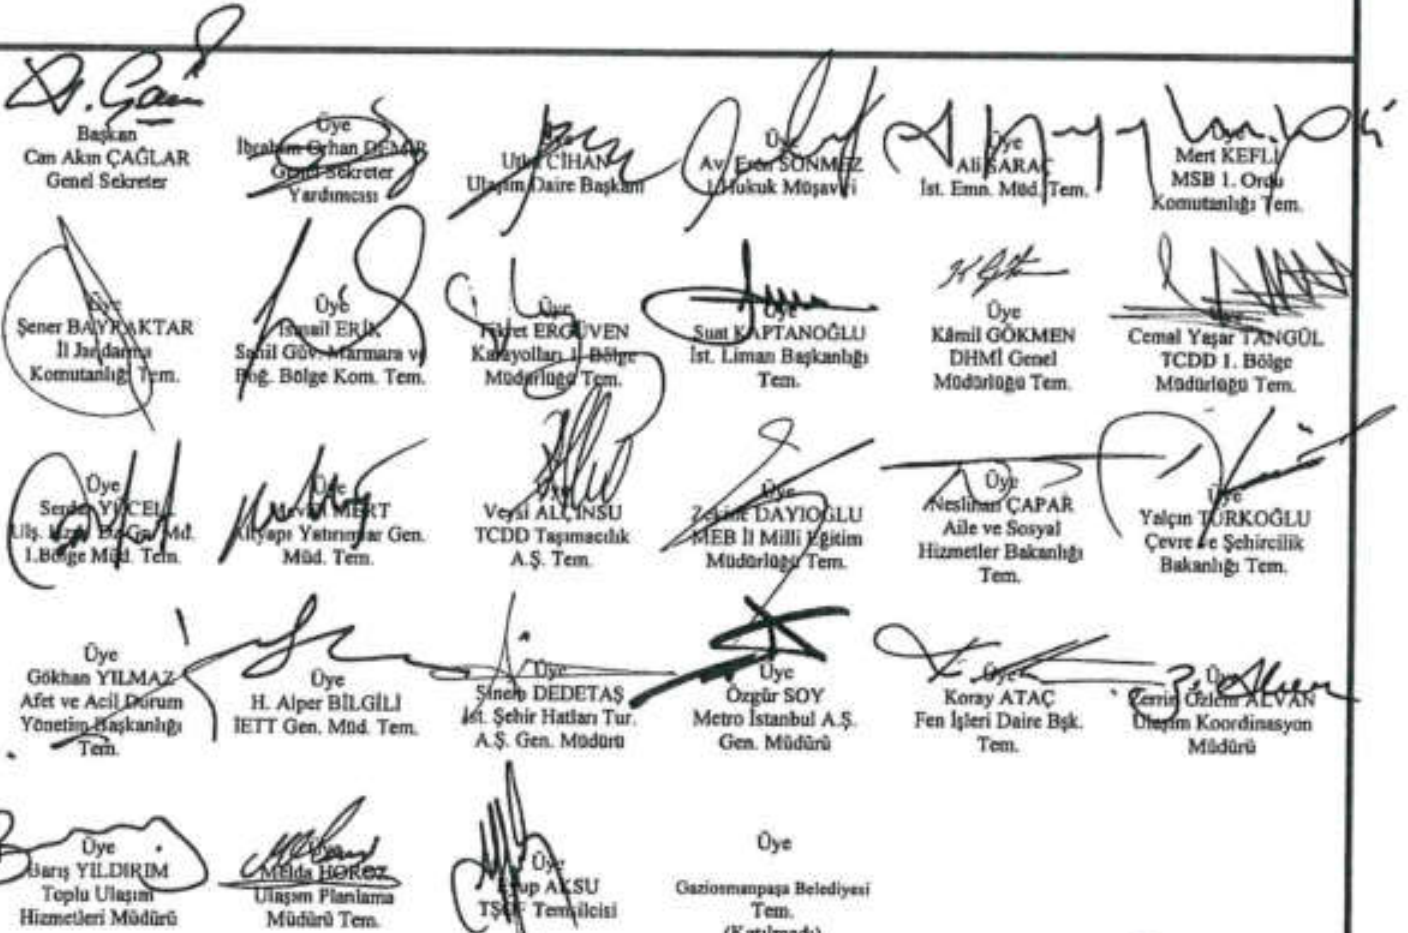 Başkan
Can Akın ÇAĞLAR
Genel Sekreter
Üye
İbrahim Orhan DEMİR
Genel Sekreter
Yardımcısı
Utku CİHAN
Ulaşım Daire Başkanı
Üye
Av. Eren SÖNMEZ
1.Hukuk Müşaviri
Üye
Ali SARAÇ
İst. Emn. Müd. Tem.
Üye
Mert KEFLİ
MSB 1. Ordu
Komutanlığı Tem.
Üye
Şener BAYRAKTAR
İl Jandarma
Komutanlığı Tem.
Üye
İsmail ERİK
Sahil Güv. Marmara ve
Boğ. Bölge Kom. Tem.
Üye
Fikret ERGÜVEN
Karayolları 1. Bölge
Müdürlüğü Tem.
Üye
Suat KAPTANOĞLU
İst. Liman Başkanlığı
Tem.
Üye
Kâmil GÖKMEN
DHMİ Genel
Müdürlüğü Tem.
Cemal Yaşar TANGÜL
TCDD 1. Bölge
Müdürlüğü Tem.
Üye
Serdar YÜCEL
1.Bölge Müd. Tem.
Üye
MERT
Altyapı Yatırımlar Gen.
Müd. Tem.
Üye
Veysi ALÇINSU
TCDD Taşımacılık
A.Ş. Tem.
Üye
DAYIOĞLU
MEB İl Milli Eğitim
Müdürlüğü Tem.
Üye
Neslihan ÇAPAR
Aile ve Sosyal
Hizmetler Bakanlığı
Tem.
Üye
Yalçın TÜRKOĞLU
Çevre ve Şehircilik
Bakanlığı Tem.
Üye
Gökhan YILMAZ
Afet ve Acil Durum
Yönetim Başkanlığı
Tem.
Üye
H. Alper BİLGİLİ
İETT Gen. Müd. Tem.
Üye
Sinem DEDETAŞ
İst. Şehir Hatları Tur.
A.Ş. Gen. Müdürü
Üye
Özgür SOY
Metro İstanbul A.Ş.
Gen. Müdürü
Üye
Koray ATAÇ
Fen İşleri Daire Bşk.
Tem.
Zerrin Özlem ALVAN
Ulaşım Koordinasyon
Müdürü
Üye
Barış YILDIRIM
Toplu Ulaşım
Hizmetleri Müdürü
Üye
Melda HOROZ
Ulaşım Planlama
Müdürü Tem.
Üye
Eyup AKSU
TŞOF Temsilcisi
Üye
Gaziosmanpaşa Belediyesi
Tem.
(Katılmadı)